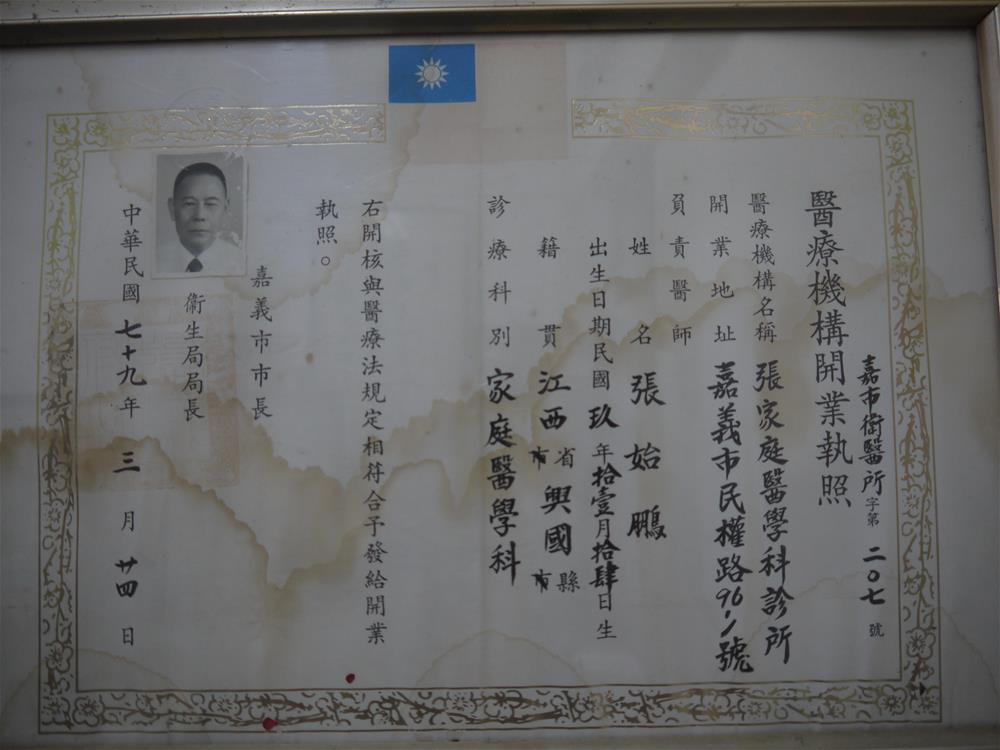 醫療機構開業執照
嘉市衛醫所字第二〇七號
醫療機構名稱 張家庭醫學科診所
開業地址 嘉義市民權路96-1號
負責醫師
姓名 張始鵬
出生日期民國玖年拾壹月拾肆日生
籍貫 江西省市興國縣市
診療科別 家庭醫學科
右開核與醫療法規定相符合予發給開業
執照。
嘉義市市長
衛生局局長
中華民國七十九年三月廿四日